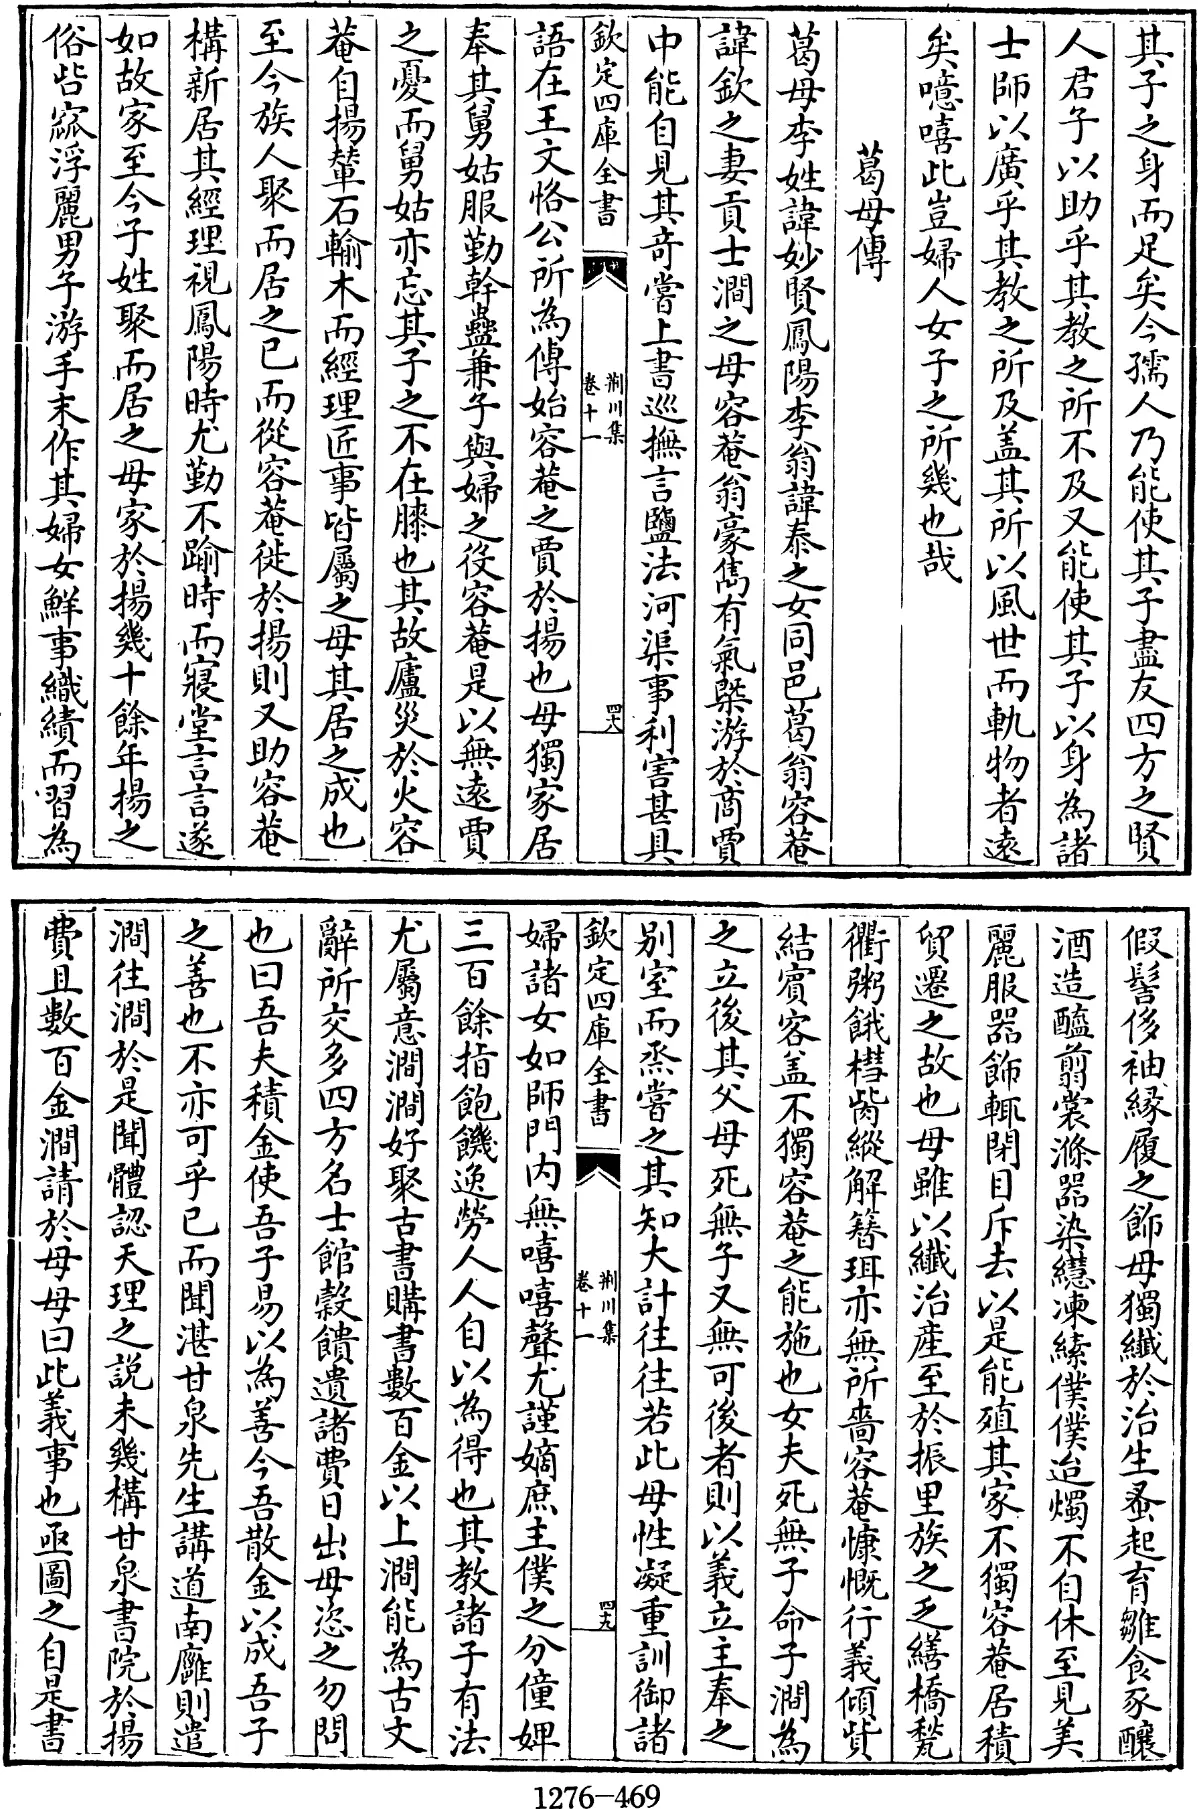 其子之身而足矣今孺人乃能使其子盡友四方之賢
人君子以助乎其教之所不及又能使其子以身為諸
士師以廣乎其教之所及盖其所以風世而軌物者遠
矣噫嘻此豈婦人女子之所幾也哉
葛母傳
葛母李姓諱妙賢鳳陽李翁諱泰之女同邑葛翁容菴
諱欽之妻貢士澗之母容菴翁豪雋有氣槩游於商賈
中能自見其奇嘗上書巡撫言鹽法河渠事利害甚具
欽定四庫全書
荆川集
卷十一
四六
語在王文恪公所為傳始容菴之賈於揚也母獨家居
奉其舅姑服勤幹蠱兼子與婦之役容菴是以無遠賈
之憂而舅姑亦忘其子之不在膝也其故廬災於火容
菴自揚輦石輸木而經理匠事皆屬之母其居之成也
至今族人聚而居之已而從容菴徙於揚則又助容菴
構新居其經理視鳳陽時尤勤不踰時而寢堂言言遂
如故家至今子姓聚而居之母家於揚幾十餘年揚之
俗呰窳浮麗男子游手末作其婦女鮮事織績而習為
假髻侈袖緣履之飾母獨纖於治生蚤起育雛食豕釀
酒造醢翦裳滌器染纑湅絲僕僕迨燭不自休至見美
麗服器飾輒閉目斥去以是能殖其家不獨容菴居積
貿遷之故也母雖以纖治產至於振里族之乏繕橋甃
衢粥餓槥胔縱解簪珥亦無所嗇容菴慷慨行義傾貲
結賓客盖不獨容菴之能施也女夫死無子命子澗為
之立後其父母死無子又無可後者則以義立主奉之
別室而烝嘗之其知大計往往若此母性凝重訓御諸
欽定四庫全書
荆川集
卷十一
四九
婦諸女如師門内無嘻嘻聲尤謹嫡庶主僕之分僮婢
三百餘指飽饑逸勞人人自以為得也其教諸子有法
尤屬意澗澗好聚古書購書數百金以上澗能為古文
辭所交多四方名士館穀饋遺諸費日出母恣之勿問
也曰吾夫積金使吾子易以為善今吾散金以成吾子
之善也不亦可乎已而聞湛甘泉先生講道南廱則遣
澗往澗於是聞體認天理之説未幾構甘泉書院於揚
費且數百金澗請於母母曰此義事也亟圖之自是書
1276-469